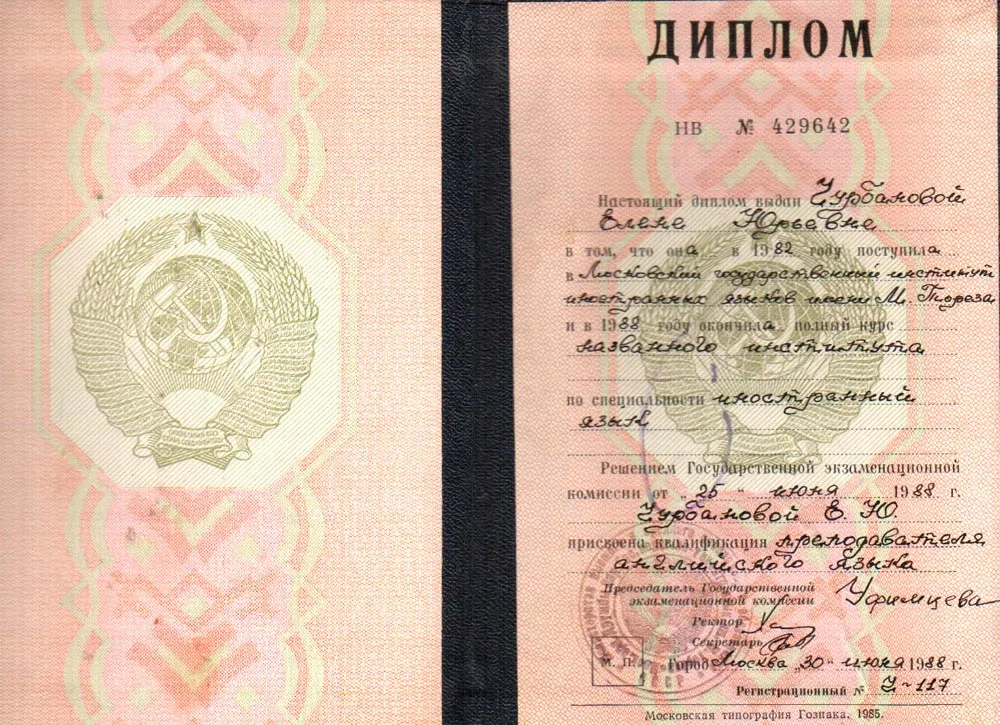 ДИПЛОМ
НВ № 429642
Настоящий диплом выдан Чурбановой
Елене Юрьевне
в том, что она в 1982 году поступила
в Московский государственный институт
иностранных языков имени М. Тореза
и в 1988 году окончила полный курс
названного института
по специальности иностранный
язык
Решением Государственной экзаменационной
комиссии от „25“ июня 1988 г.
Чурбановой Е. Ю.
присвоена квалификация преподавателя
английского языка
Председатель Государственной
экзаменационной комиссии Уфимцева
Ректор
Секретарь
М. П. Город Москва „30“ июня 1988 г.
Регистрационный № Ч-117
Московская типография Гознака. 1985.